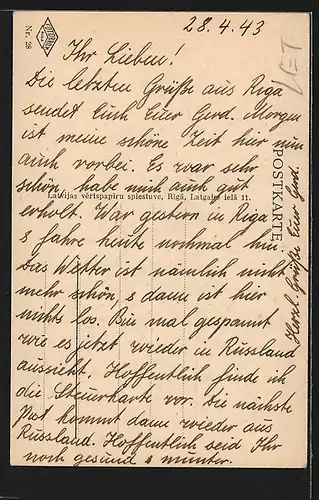 28.4.43
Nr. 28
Ihr Lieben!
Die letzten Grüße aus Riga
sendet Euch Euer Gerd. Morgen
ist meine schöne Zeit hier nun
auch vorbei. Es war sehr
schön, habe mich auch gut
Latvijas vērtspapīru spiestuve, Rīgā, Latgales ielā 11.
erholt. War gestern in Riga
s fahre heute nochmal hin.
Das Wetter ist nämlich nicht
mehr schön, s dann ist hier
nichts los. Bin mal gespannt
wie es jetzt wieder in Russland
aussieht. Hoffentlich finde ich
die Steuerkarte vor. Die nächste
Post kommt dann wieder aus
Russland. Hoffentlich seid Ihr
noch gesund s munter.
POSTKARTE
Herzl. Grüße Euer Gerd.